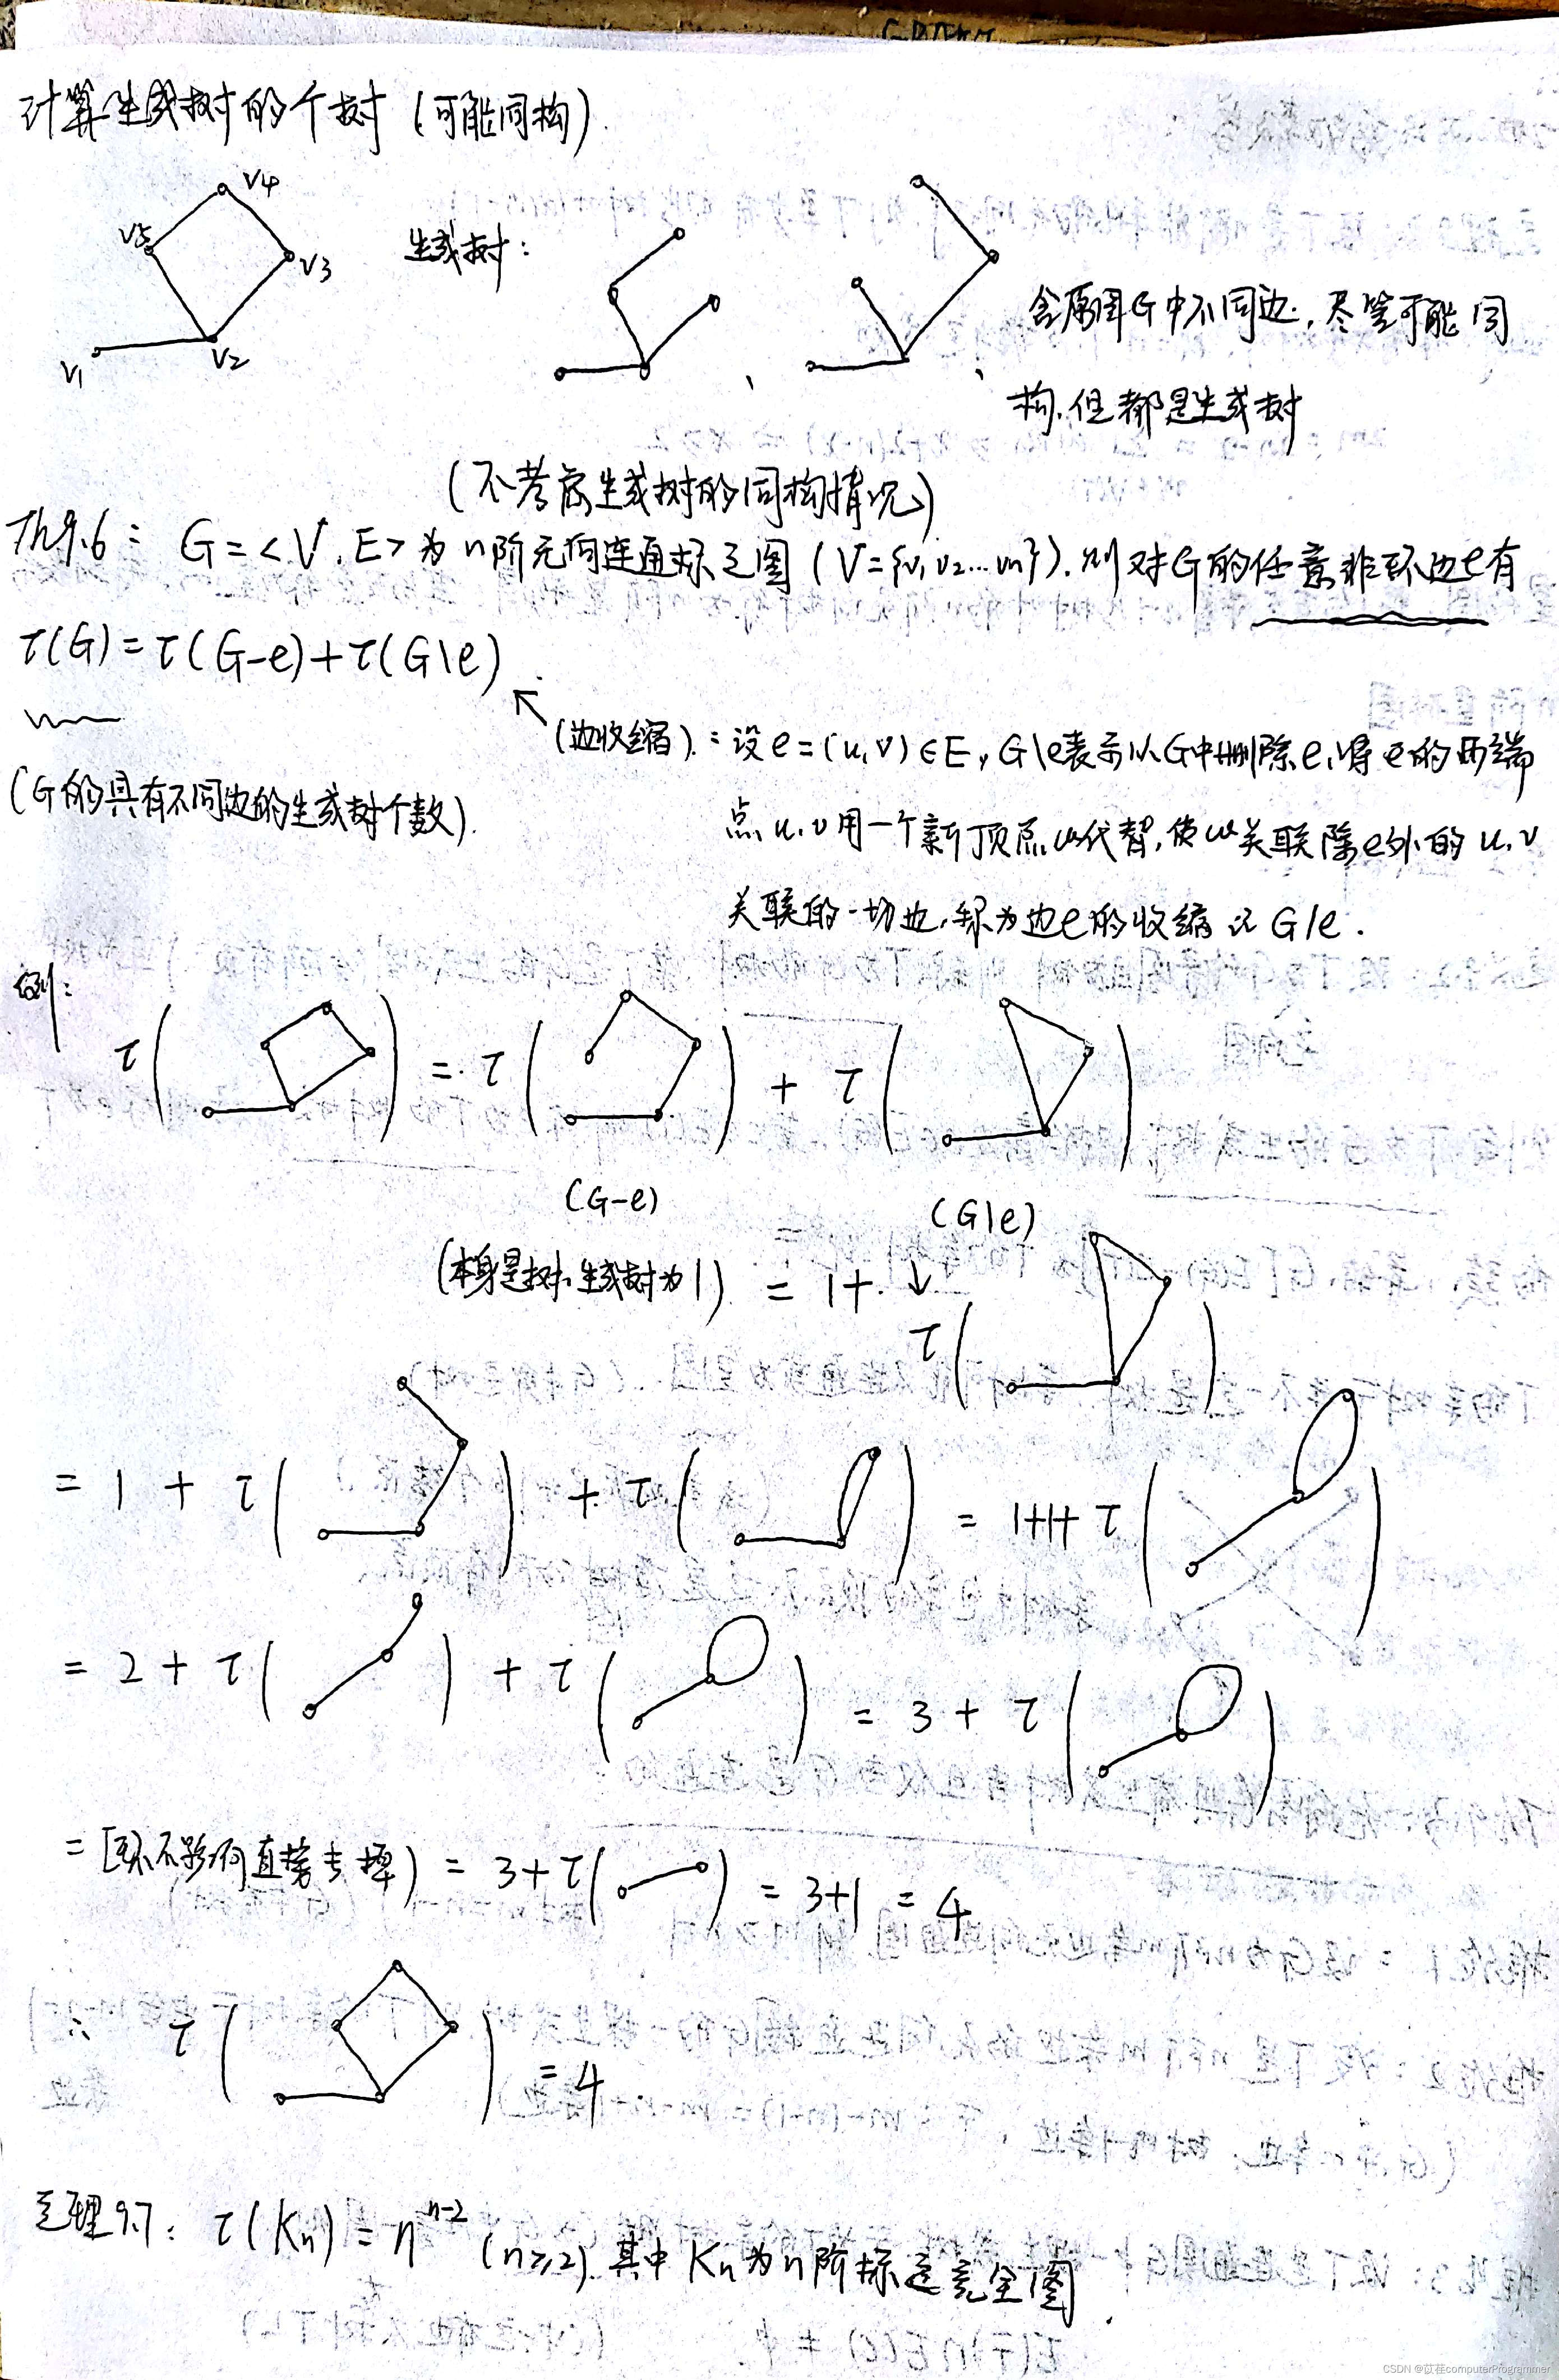 计算生成树的个树 (可能同构)
v4
v5
v3
v1
v2
生成树:
、
、
含原图G中不同边, 尽管可能同
构, 但都是生成树
(不考虑生成树的同构情况)
Th9.6: G=<V, E> 为n阶无向连通标定图 (V={v1 v2…vn}), 则对G的任意非环边e有
τ(G)=τ(G-e)+τ(G\e)
(边收缩): 设e=(u,v)∈E, G\e表示从G中删除e, 将e的两端
(G的具有不同边的生成树个数).
点u,v用一个新顶点w代替, 使w关联除e外的u,v
关联的一切边, 称为边e的收缩 记G\e.
例:
τ( ) = τ( ) + τ( )
(G-e)
(G\e)
(本身是树, 生成树为1) = 1+ ↓
τ( )
= 1 + τ( ) + τ( ) = 1+1+ τ( )
= 2 + τ( ) + τ( ) = 3 + τ( )
= [环不影响直接去掉) = 3+τ( ) = 3+1 = 4
∴ τ( ) = 4
定理9.7: τ(Kn) = n^{n-2} (n≥2). 其中Kn为n阶标定完全图.
CSDN @苡荏computerProgrammer